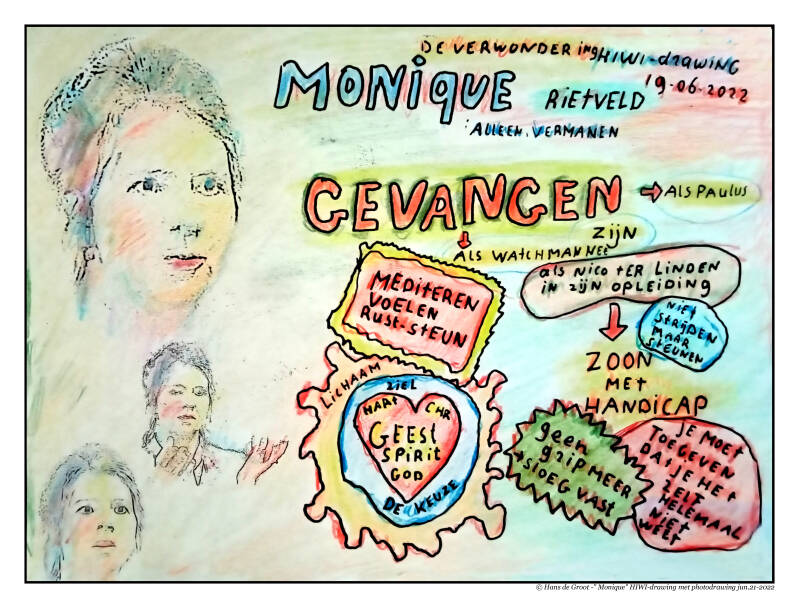 DE VERWONDERing HIWI-drawing
19-06-2022
MONiQUE RiETVELD
ALLEEN. VERMANEN
GEVANGEN
ALS PAULUS
ZijN
ALS WATCHMAN NEE
als NiCO tER LiNDEN
iN zijN OPLEiDiNG
MEDiTEREN
VOELEN
RUST-STEUN
NiET
STRijDEN
MAAR
STEUNEN
ZOON
MET
HANDICAP
LiCHAAM
ZiEL
HART CHR
GEEST
SPiRiT
GOD
DE KEUZE
geen
grip MEER
SLOEG VAST
JE MOET
TOEGEVEN
DAt JE HEt
ZELF
HELEMAAL
NiET
WEET
© Hans de Groot -" Monique" HIWI-drawing met photodrawing jun.21-2022